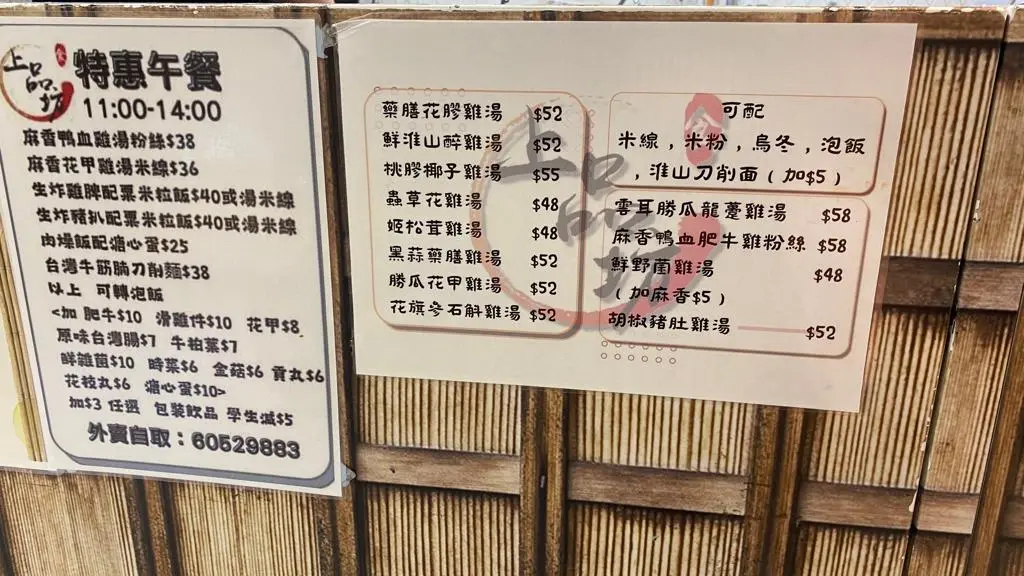 上品坊
食
特惠午餐
11:00-14:00
麻香鴨血雞湯粉絲$38
麻香花甲雞湯米線$36
生炸雞脾配粟米拉飯$40或湯米線
生炸豬扒配粟米拉飯$40或湯米線
肉燥飯配溏心蛋$25
台灣牛筋腩刀削麵$38
以上 可轉泡飯
<加 肥牛$10 滑雞件$10 花甲$8
原味台灣腸$7 牛柏葉$7
鮮雜菌$10 時菜$6 金菇$6 貢丸$6
花枝丸$6 溏心蛋$10>
加$3 任選 包裝飲品 學生減$5
外賣自取：60529883
藥膳花膠雞湯 $52
鮮淮山醉雞湯 $52
桃膠椰子雞湯 $55
蟲草花雞湯 $48
姬松茸雞湯 $48
黑蒜藥膳雞湯 $52
勝瓜花甲雞湯 $52
花旗參石斛雞湯 $52
上品坊
食
可配
米線，米粉，烏冬，泡飯
，淮山刀削面（加$5）
雲耳勝瓜龍躉雞湯 $58
麻香鴨血肥牛雞粉絲 $58
鮮野菌雞湯 $48
（加麻香$5）
胡椒豬肚雞湯 $52